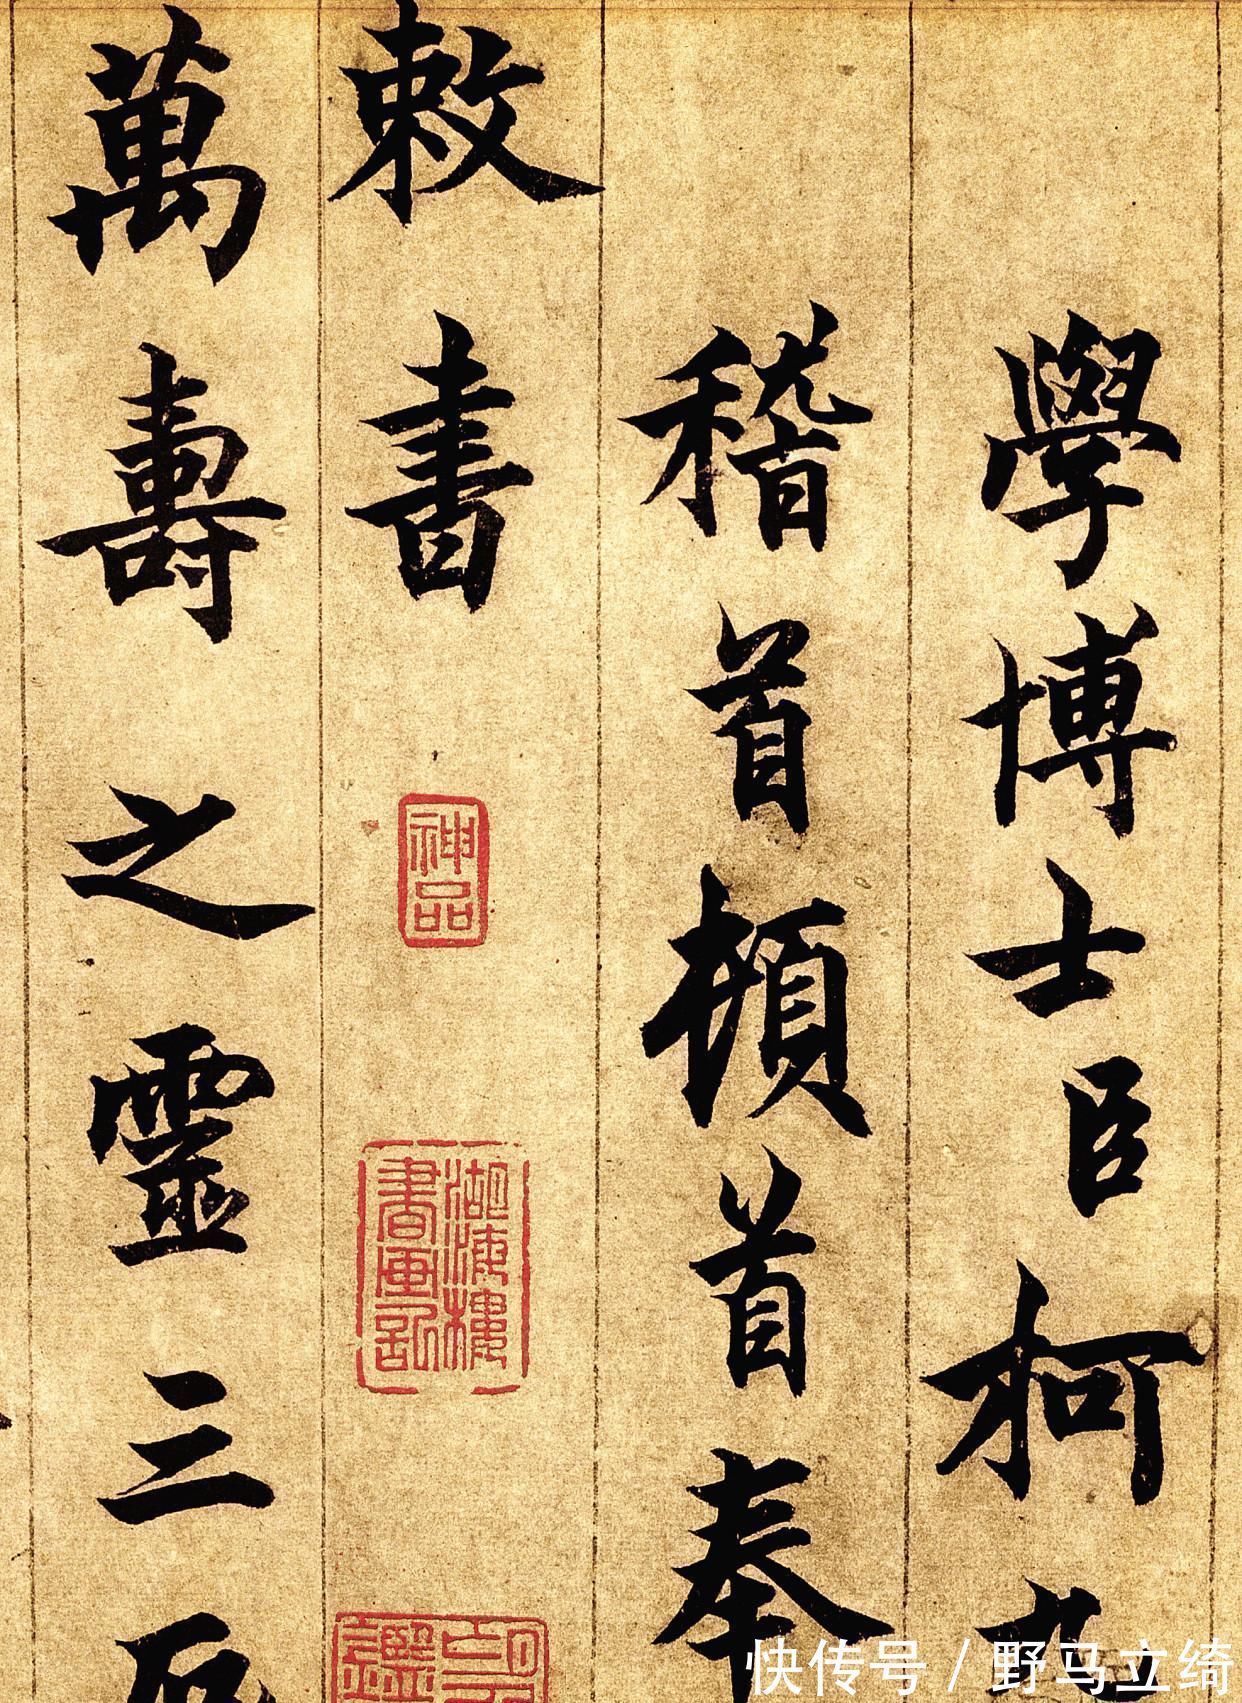 學博士臣柯九
稽首頓首奉
敕書
神品
湖海樓書畫記
萬壽之靈三辰
快传号 / 野马立绮